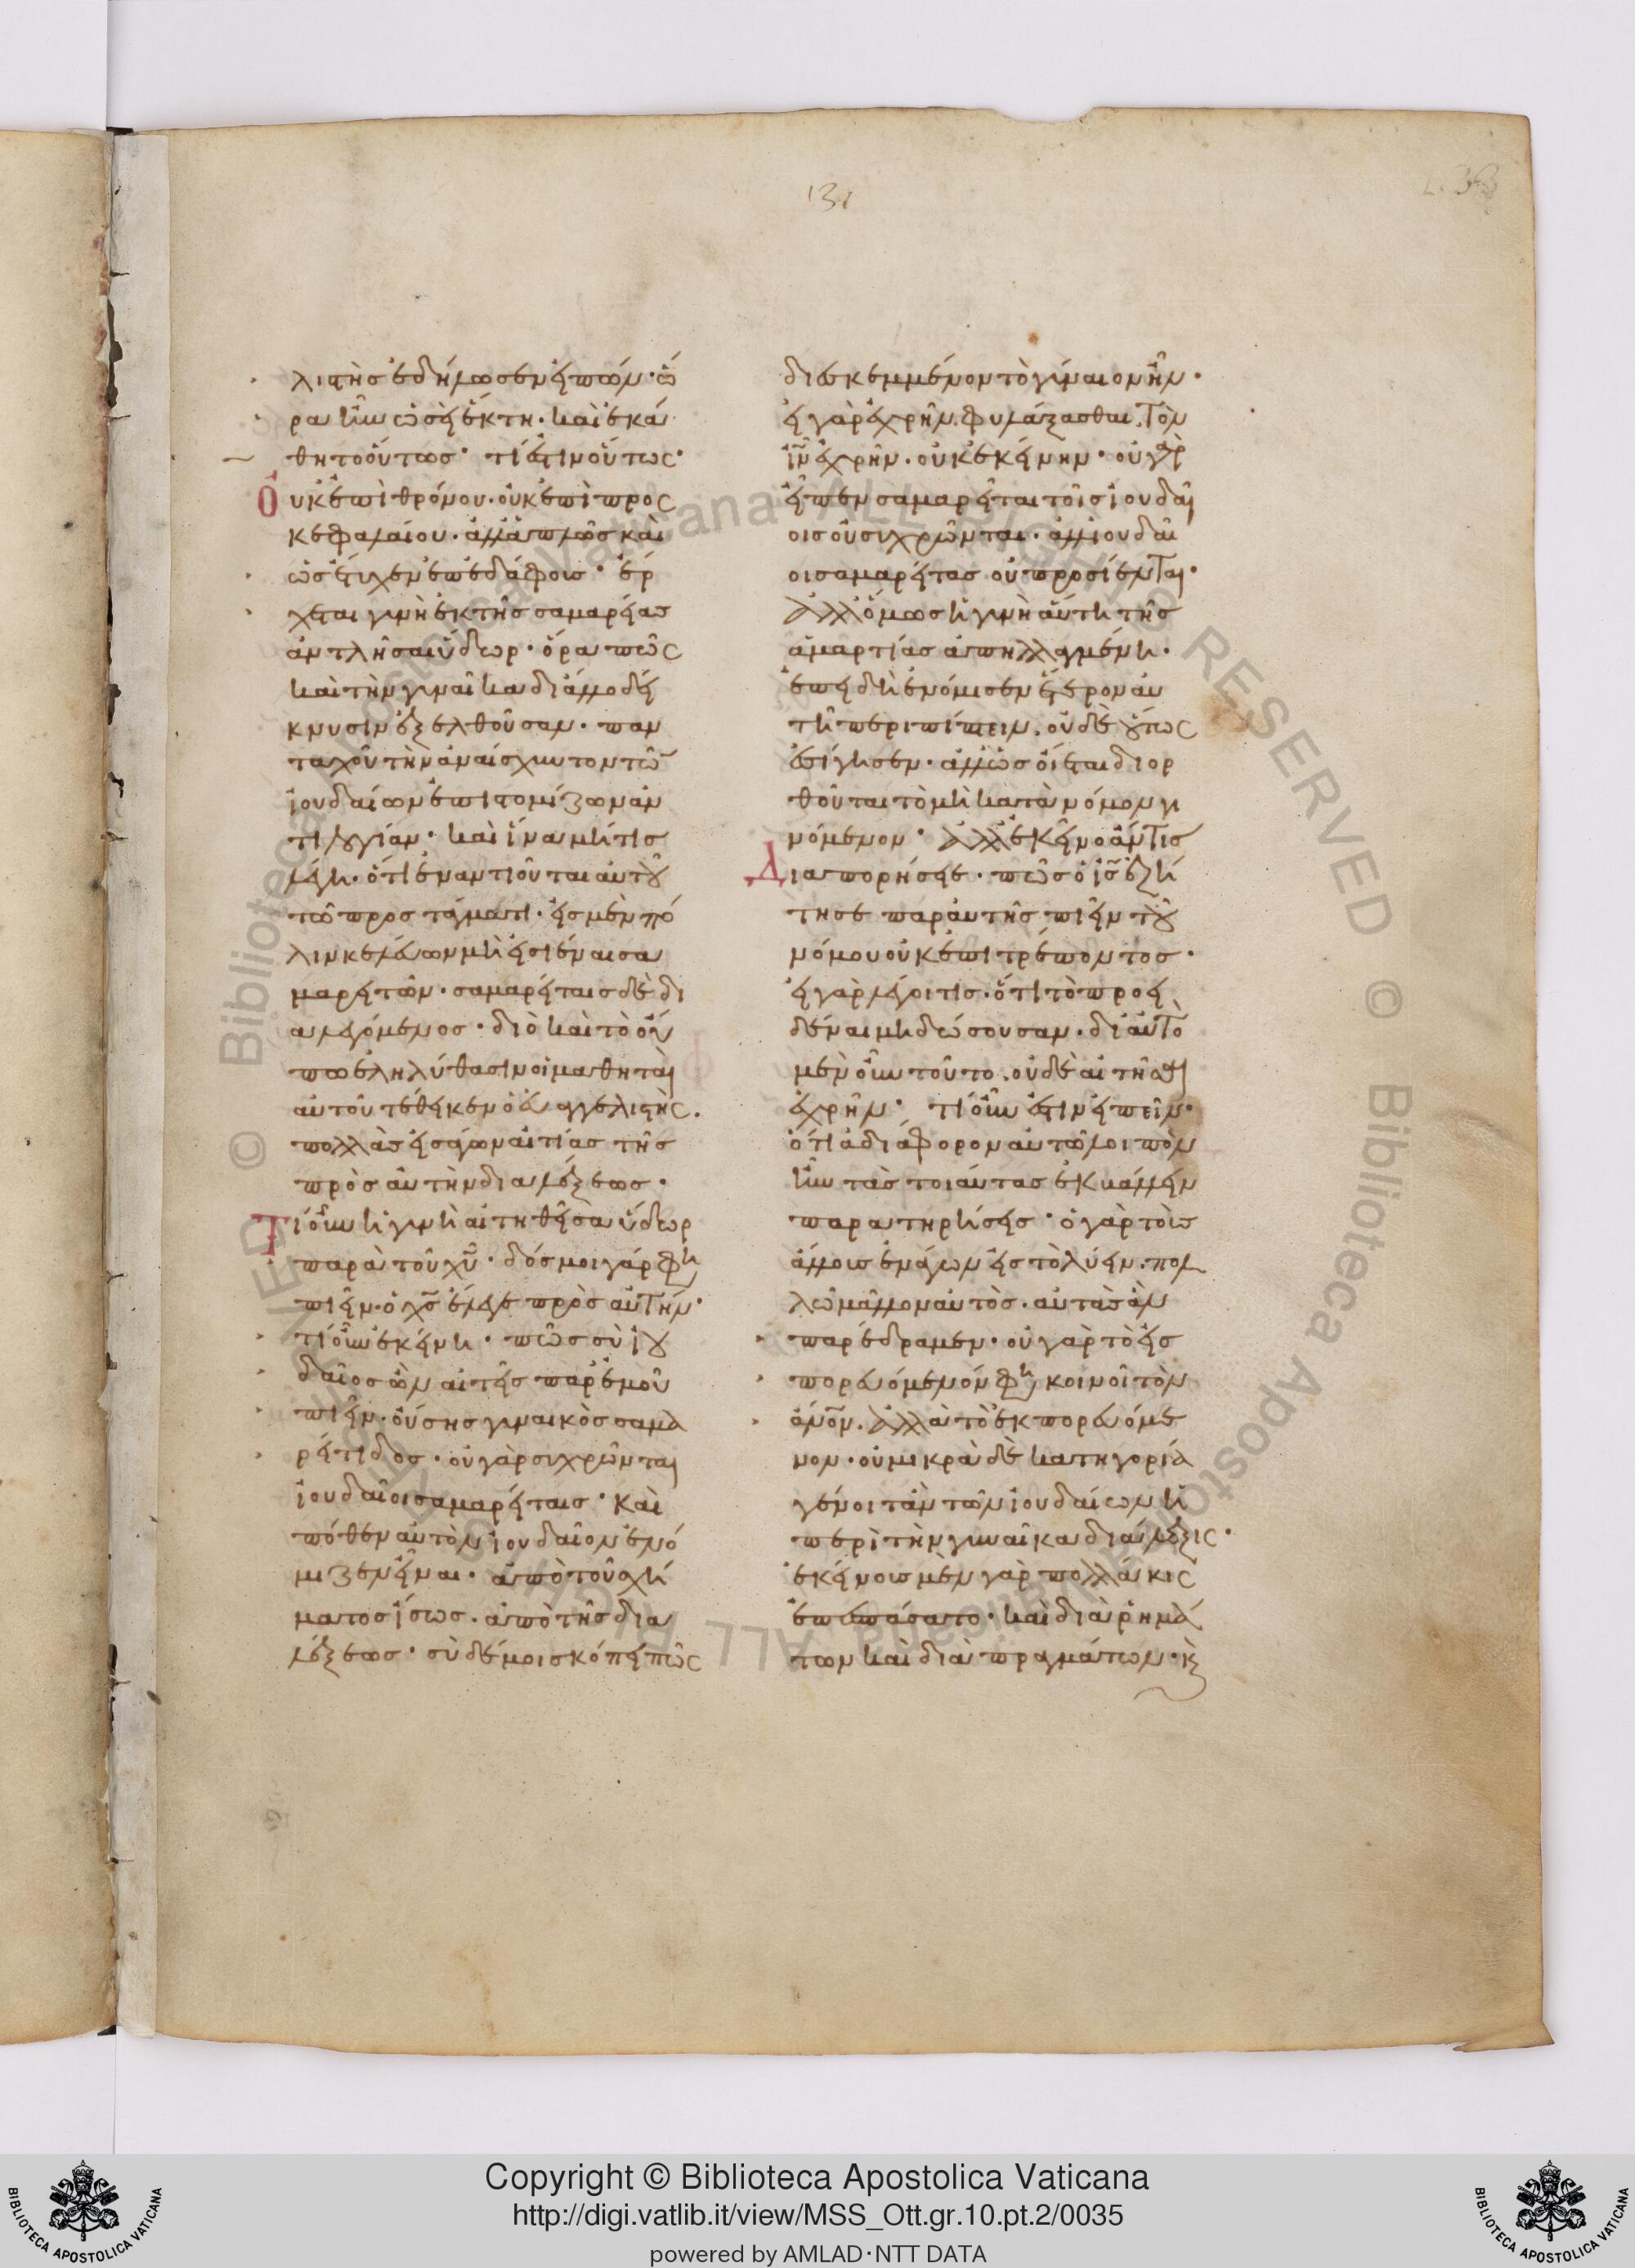 131
λιστὴς ἐδήλωσεν εἰπών· ὥ
ρα ἦν ὡσεὶ ἕκτη· καὶ ἐκά
θητο οὕτως· τί ἐστιν οὕτως·
Οὐκ ἐπὶ θρόνου· οὐκ ἐπὶ προς
κεφαλαίου· ἀλλ' ἁπλῶς καὶ
ὡς ἔτυχεν ἐπ' ἐδάφους· ἔρ
χεται γυνὴ ἐκ τῆς σαμαρείας
ἀντλῆσαι ὕδωρ· ὅρα πῶς
καὶ τὴν γυναῖκα δι' ἄλλο δεί
κνυσιν ἐξελθοῦσαν· παν
ταχοῦ τὴν ἀναίσχυντον τῶν
ἰουδαίων ἐπιστομίζων ἀν
τιλογίαν· καὶ ἵνα μή τις
λέγη· ὅτι ἐναντιοῦται αὐτοῦ
τῶ προστάγματι· εἰς μὲν πό
λιν κελεύων μὴ εἰσιέναι σα
μαρειτῶν· σαμαρείταις δὲ δι
αλεγόμενος· διὸ καὶ τὸ οὔ
πω ἐληλύθασιν οἱ μαθηταὶ
αὐτοῦ τέθεικεν ὁ εὐαγγελιστής.
πολλὰς εἰσάγων αἰτίας τῆς
πρὸς αὐτὴν διαλέξεως·
Τί οὖν ἡ γυνὴ αἰτηθεῖσα ὕδωρ
παρὰ τοῦ χυ· δός μοι γάρ φη
πιεῖν· ὁ χς ἔλεγε πρὸς αὐτήν·
τί οὖν ἐκείνη· πῶς σὺ ἰου
δαῖος ὢν αἰτεῖς παρ' ἐμοῦ
πιεῖν· οὔσης γυναικὸς σαμα
ρείτιδος· οὐ γὰρ συχρῶνται
ἰουδαῖοι σαμαρείταις· καὶ
πόθεν αὐτὸν ἰουδαῖον ἐνό
μιζεν εἶναι· ἀπὸ τοῦ σχή
ματος ἴσως· ἀπὸ τῆς δια
λέξεως· σὺ δέ μοι σκόπει πῶς
διεσκεμμένον τὸ γύναιον ἦν·
εἰ γὰρ ἐχρῆν φυλάξασθαι τὸν
ιν ἐχρῆν· οὐκ ἐκείνην· οὐ γὰρ
εἶπεν σαμαρεῖται τοῖς ἰουδαί
οις οὐ συχρῶνται· ἀλλ' ἰουδαῖ
οι σαμαρείτας οὐ προσίενται·
ἀλλ' ὅμως ἡ γυνὴ αὕτη τῆς
ἁμαρτίας ἀπηλλαγμένη·
ἐπειδὴ ἐνόμισεν ἕτερον αὐ
τῆ περιπίπτειν· οὐδὲ οὕτως
ἐσίγησεν· ἀλλ' ὡς οἴεται διορ
θοῦται τὸ μὴ κατὰ νόμον γι
νόμενον· ἀλλ' ἐκεῖνο ἄν τις
Διαπορήσειε· πῶς ὁ ις ἐζή
τησε παρ' αὐτῆς πιεῖν τοῦ
νόμου οὐκ ἐπιτρέποντος·
εἰ γὰρ λέγοι τις· ὅτι τὸ προει
δέναι μὴ δώσουσαν· δι' αὐτὸ
μὲν οὖν τοῦτο οὐδὲ αἰτῆσαι
ἐχρῆν· τί οὖν ἔστιν εἰπεῖν·
ὅτι ἀδιάφορον αὐτῶ λοιπὸν
ἦν τὰς τοιαύτας ἐκβάλλειν
παρατηρήσεις· ὁ γὰρ τοὺς
ἄλλους ἐνάγων εἰς τὸ λύειν· πολ
λῶ μᾶλλον αὐτὸς αὐτὰς ἂν
παρέδραμεν· οὐ γὰρ τὸ εἰς
πορευόμενόν φη κοινοῖ τὸν
ανον· ἀλλὰ τὸ ἐκπορευόμε
νον· οὐ μικρὰ δὲ κατηγορία
γένοιτ' ἂν τῶν ἰουδαίων ἡ
περὶ τὴν γυναῖκα διάλεξις·
ἐκείνους μὲν γὰρ πολλάκις
ἐπεσπάσατο· καὶ διὰ ῥημά
των καὶ διὰ πραγμάτων· κ
Copyright © Biblioteca Apostolica Vaticana
http://digi.vatlib.it/view/MSS_Ott.gr.10.pt.2/0035
powered by AMLAD·NTT DATA
BIBLIOTECA APOSTOLICA VATICANA
BIBLIOTECA APOSTOLICA VATICANA